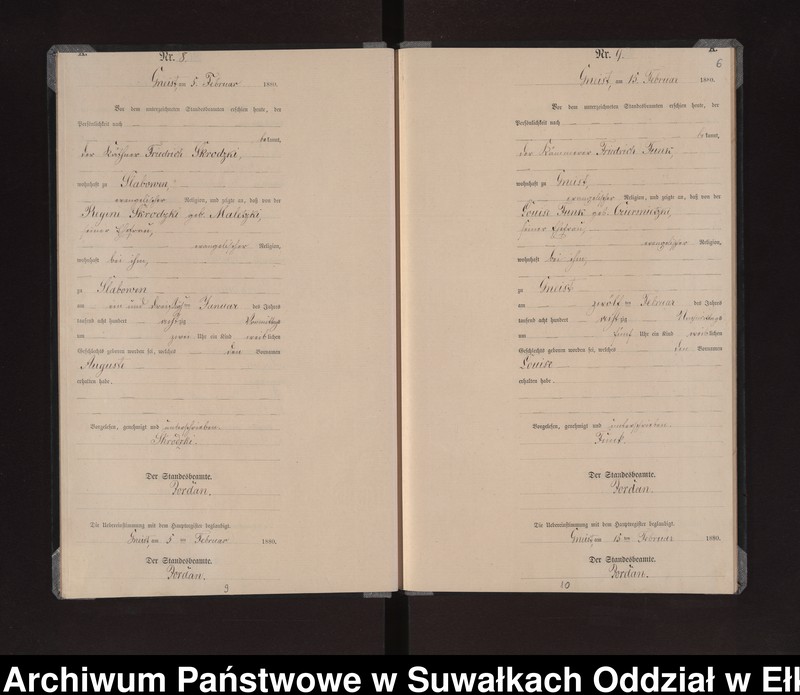 A.
Nr. 8.
Gneist, am 5. Februar 1880.
Vor dem unterzeichneten Standesbeamten erschien heute, der
Persönlichkeit nach
bekannt,
der Käthner Friedrich Skrodzki,
wohnhaft zu Slabowen,
evangelischer Religion, und zeigte an, daß von der
Regine Skrodzki geb.
seiner Ehefrau,
evangelischer Religion,
wohnhaft bei ihm,
zu Slabowen
am ein und dreißigsten Januar des Jahres
tausend acht hundert achtzig Vormittags
um zwei Uhr ein Kind weiblichen
Geschlechts geboren worden sei, welches den Vornamen
Auguste
erhalten habe.
Vorgelesen, genehmigt und unterschrieben
Skrodzki.
Der Standesbeamte.
Jordan.
Die Uebereinstimmung mit dem Hauptregister beglaubigt.
Gneist, am 5ten Februar 1880.
Der Standesbeamte.
Jordan.
9
A.
6
Nr. 9.
Gneist, am 13. Februar 1880.
Vor dem unterzeichneten Standesbeamten erschien heute, der
Persönlichkeit nach
bekannt,
der Friedrich Junk,
wohnhaft zu Gneist,
evangelischer Religion, und zeigte an, daß von der
Louise Junk geb.
seiner Ehefrau,
evangelischer Religion,
wohnhaft bei ihm,
zu Gneist
am zwölften Februar des Jahres
tausend acht hundert achtzig Nachmittags
um Uhr ein Kind weiblichen
Geschlechts geboren worden sei, welches den Vornamen
Louise
erhalten habe.
Vorgelesen, genehmigt und unterschrieben
Junk.
Der Standesbeamte.
Jordan.
Die Uebereinstimmung mit dem Hauptregister beglaubigt.
Gneist, am 13ten Februar 1880.
Der Standesbeamte.
Jordan.
10
Archiwum Państwowe w Suwałkach Oddział w Eł